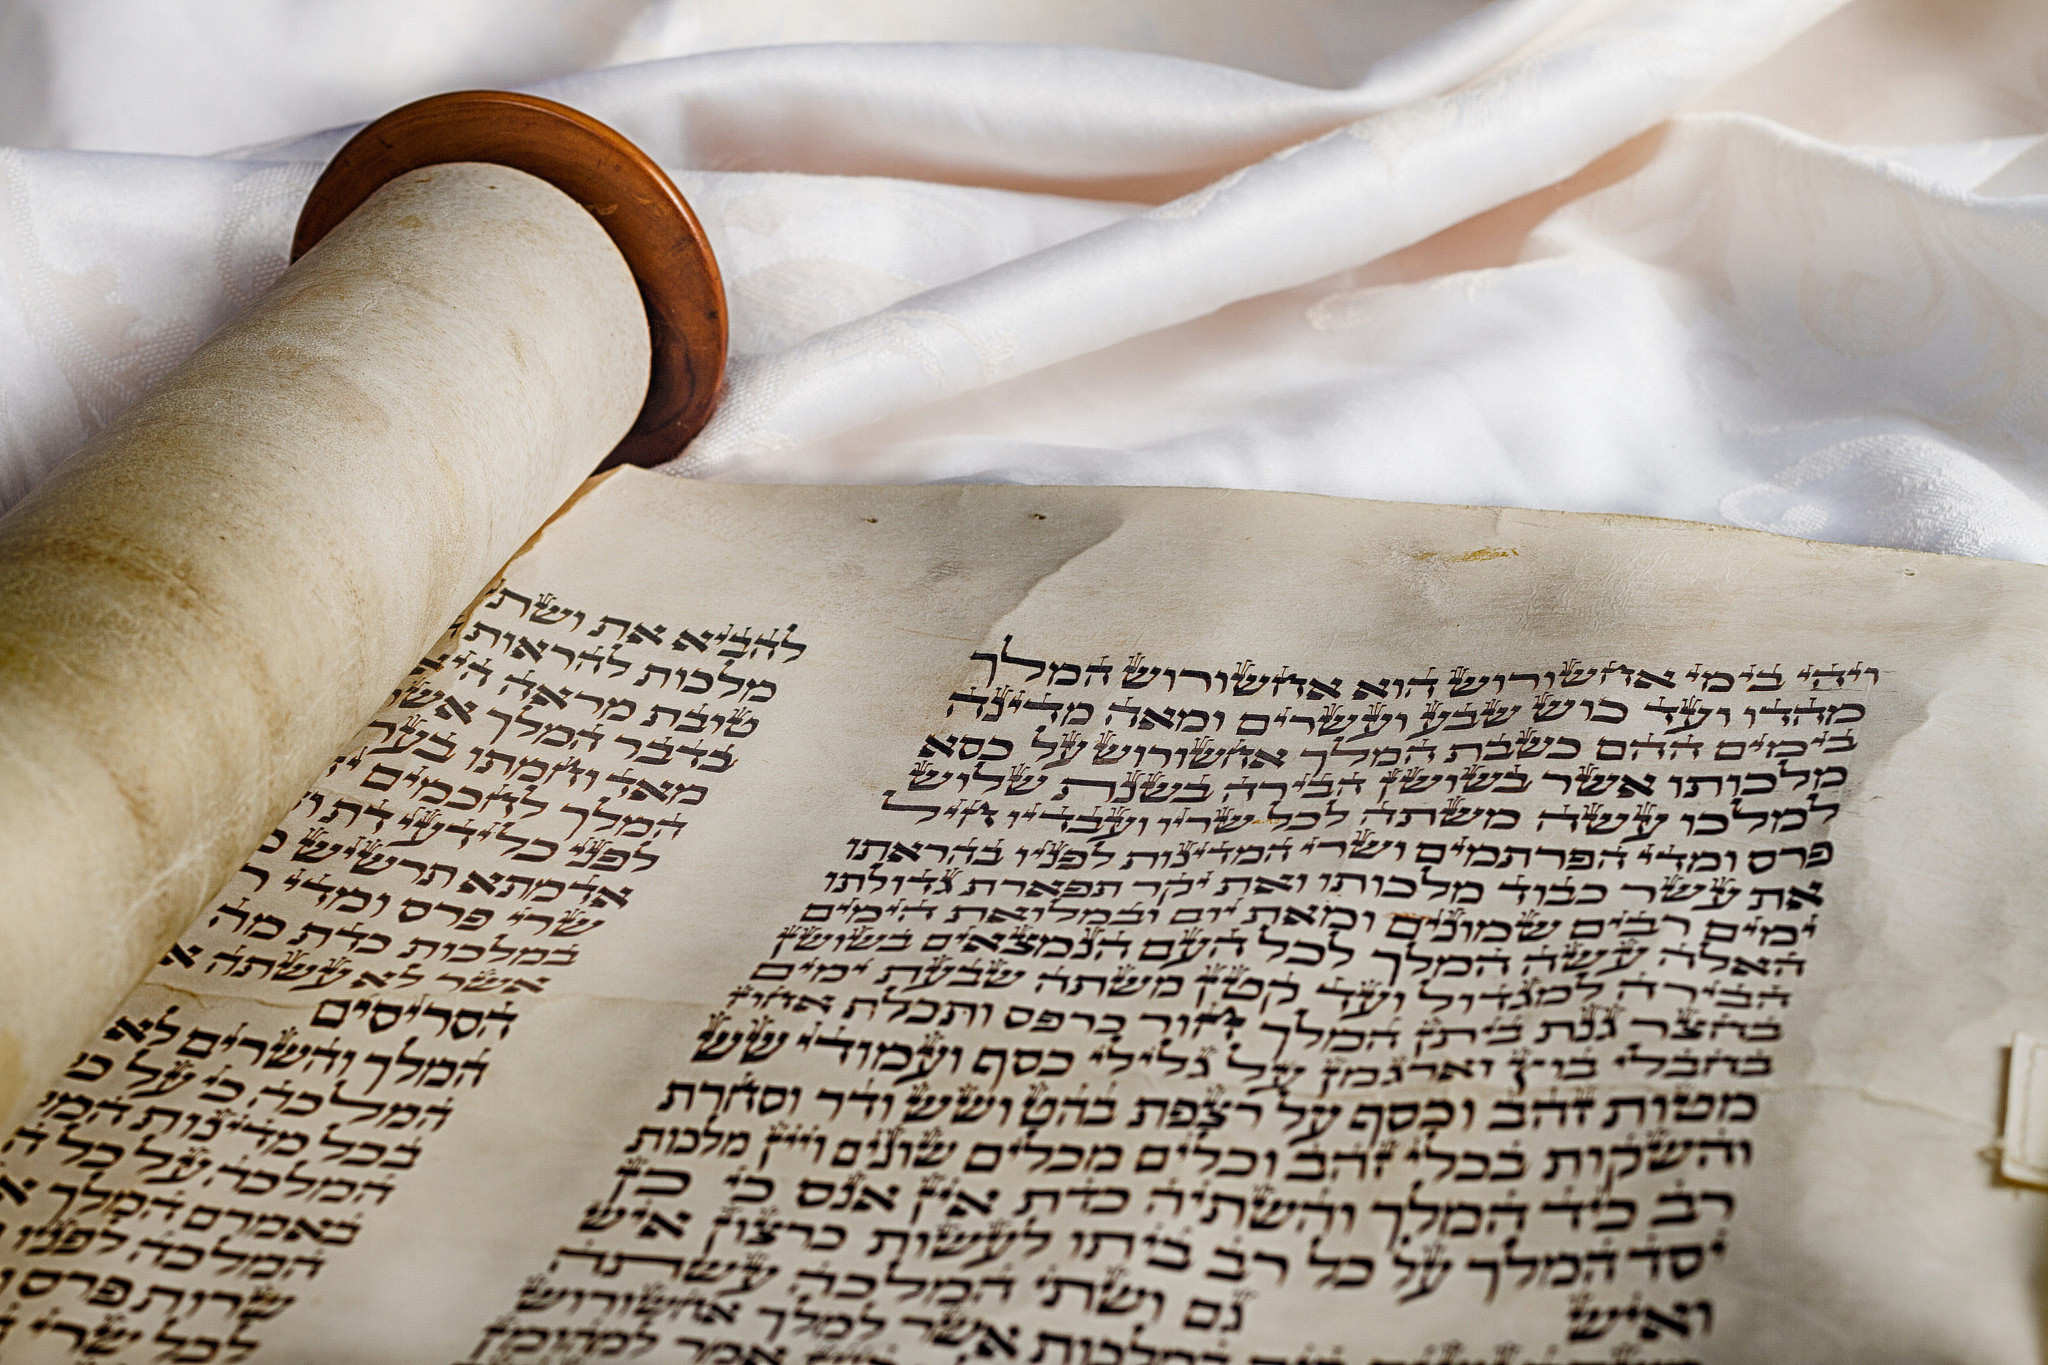 ויהי בימי אחשורוש הוא אחשורוש המלך
מהדו ועד כוש שבע ועשרים ומאה מדינה
בימים ההם כשבת המלך אחשורוש על כסא
מלכותו אשר בשושן הבירה בשנת שלוש
למלכו עשה משתה לכל שריו ועבדיו חיל
פרס ומדי הפרתמים ושרי המדינות לפניו בהראתו
את עשר כבוד מלכותו ואת יקר תפארת גדולתו
ימים רבים שמונים ומאת יום ובמלואת הימים
האלה עשה המלך לכל העם הנמצאים בשושן
הבירה למגדול ועד קטן משתה שבעת ימים
בחצר גנת ביתן המלך חור כרפס ותכלת אחוז
בחבלי בוץ וארגמן על גלילי כסף ועמודי שש
מטות זהב וכסף על רצפת בהט ושש ודר וסחרת
והשקות בכלי זהב וכלים מכלים שונים ויין מלכות
רב כיד המלך והשתיה כדת אין אנס כי כן
יסד המלך על כל רב ביתו לעשות כרצון איש
ואיש
גם ושתי המלכה עשתה
מלכות אשר למלך אחשורוש
אמר למהומן
להביא את
מלכות להראות
טובת מראה היא
בדבר המלך אשר
מאד וחמתו בערה
המלך לחכמים
לפני כל ידעי דת
אדמתא תרשיש
שרי פרס ומדי
במלכות כדת מה
אשר לא עשתה
הסריסים
המלך והשרים לא
המלכה כי על
בכל מדינות
המלכה על כל
באמרם המלך
המלכה לפניו
שרות פרס
לכל שרי